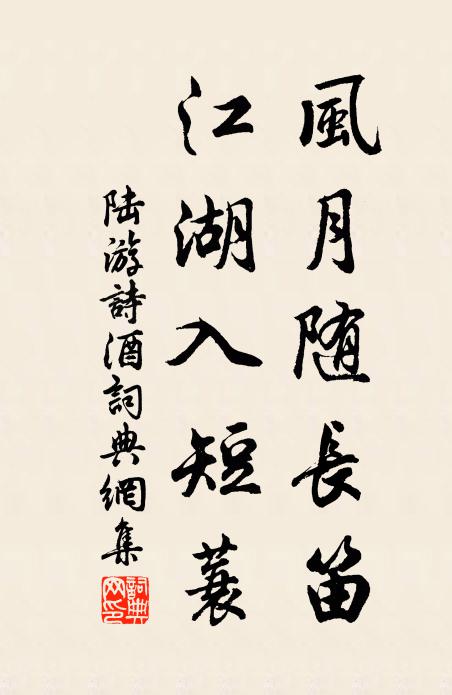 風月随長笛
江湖入短蓑
陆游詩酒詞典網集
詞典網印